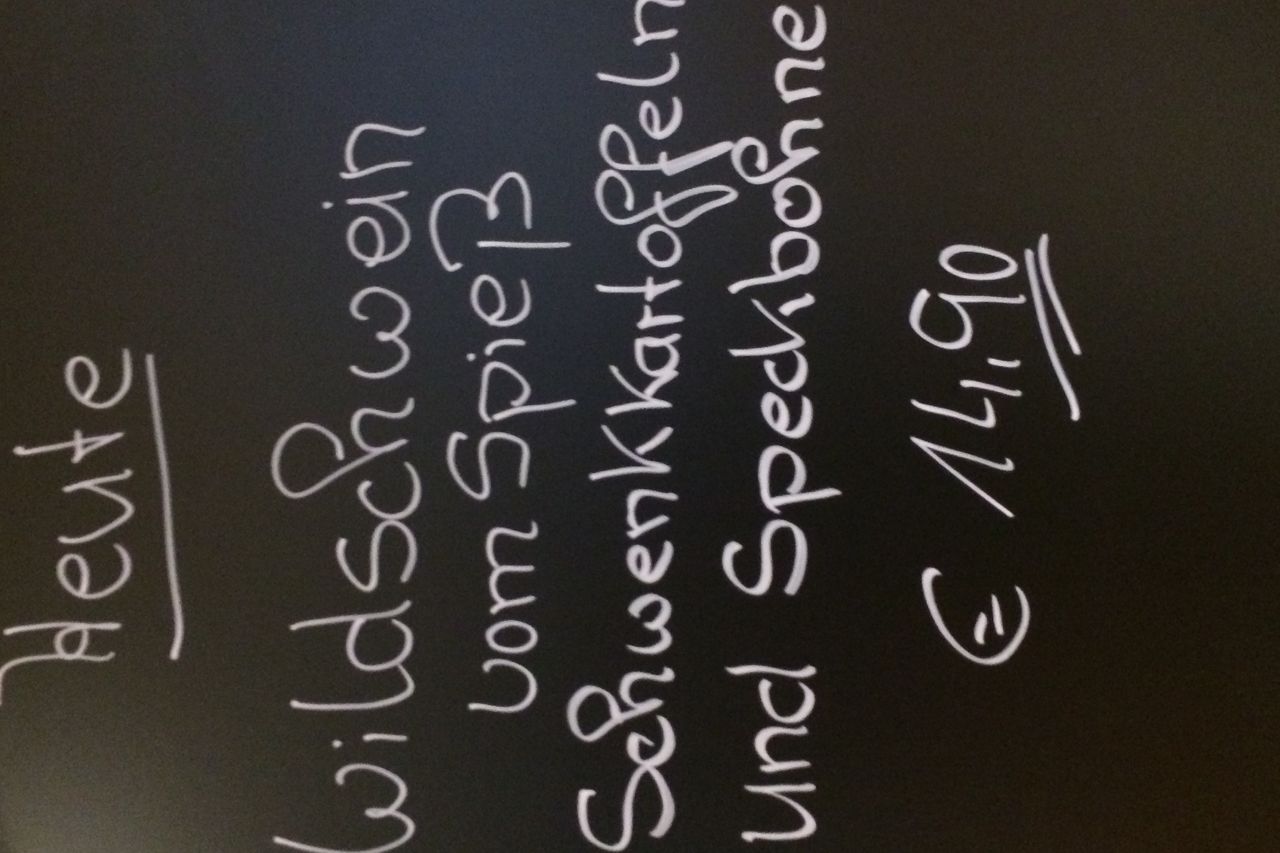 Heute
Wildschwein
vom Spieß
Schwenkkartoffeln
und Speckbohne
€ 14,90